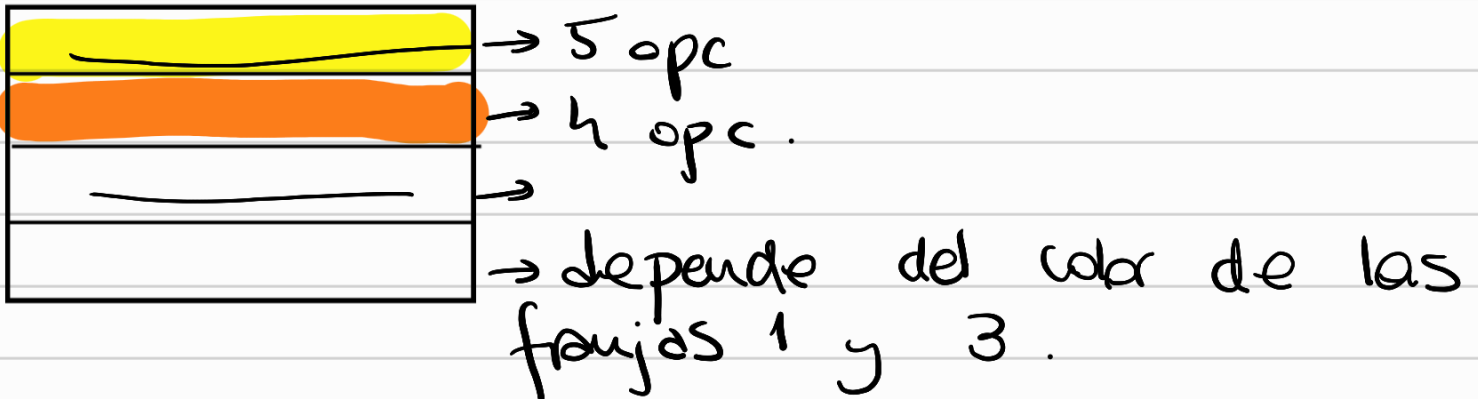 → 5 opc
→ 4 opc.
→
→ depende del color de las
franjas 1 y 3.